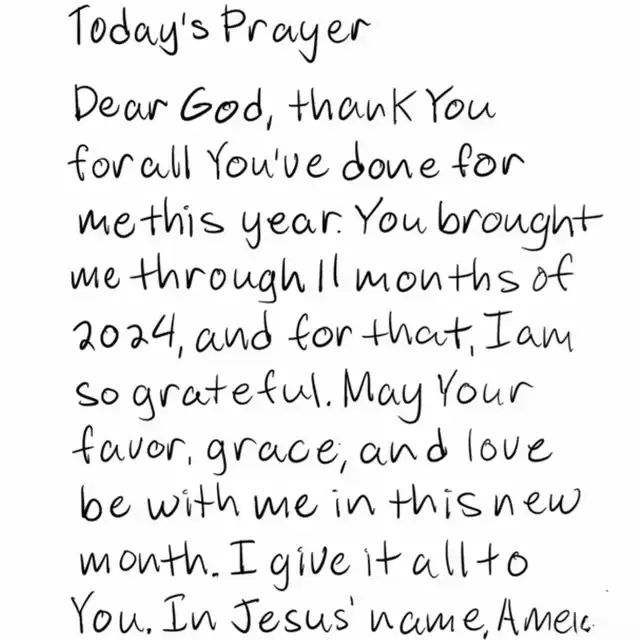 Today's Prayer
Dear God, thank You
for all You've done for
me this year. You brought
me through 11 months of
2024, and for that, I am
so grateful. May Your
favor, grace, and love
be with me in this new
month. I give it all to
You. In Jesus' name, Amen